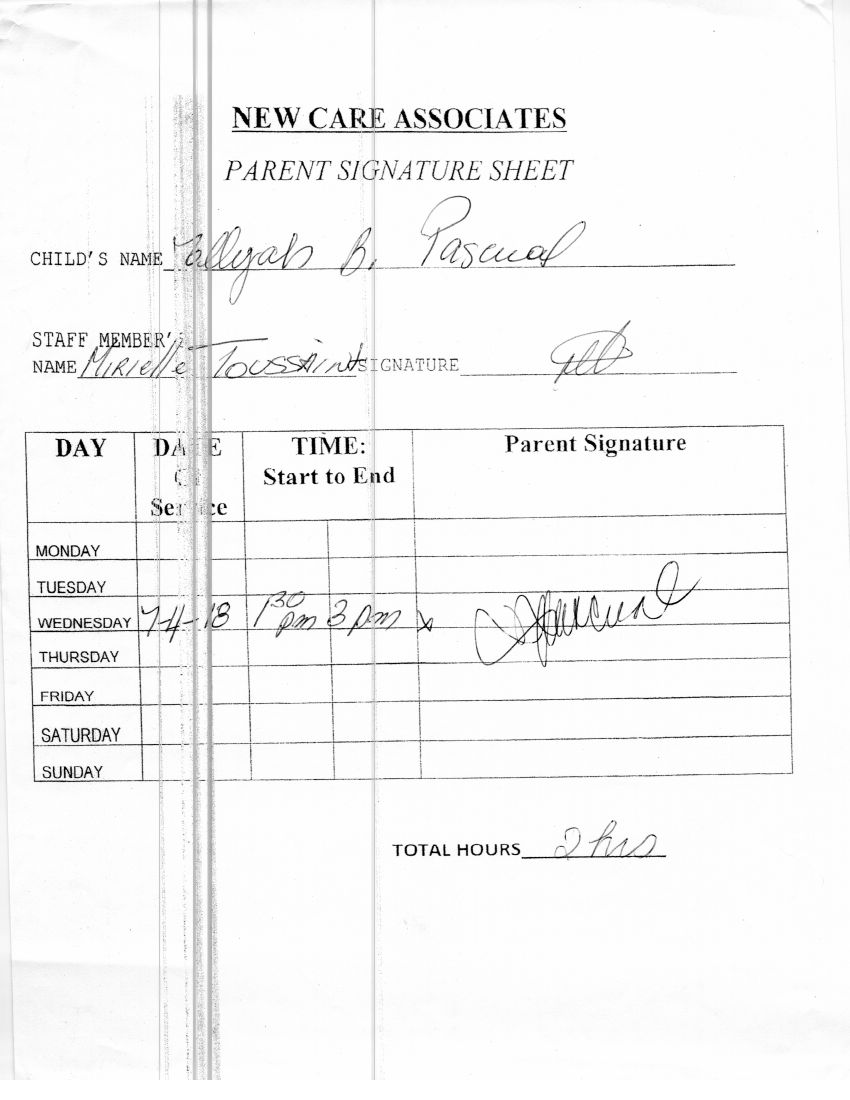 NEW CARE ASSOCIATES
PARENT SIGNATURE SHEET
CHILD'S NAME B. Pascual
STAFF MEMBER'S
NAME Mirielle Toussaint SIGNATURE
DAY DATE Of Service TIME: Start to End Parent Signature
MONDAY
TUESDAY
WEDNESDAY 7-4-18 130 pm 3 pm x
THURSDAY
FRIDAY
SATURDAY
SUNDAY
TOTAL HOURS 2 hrs